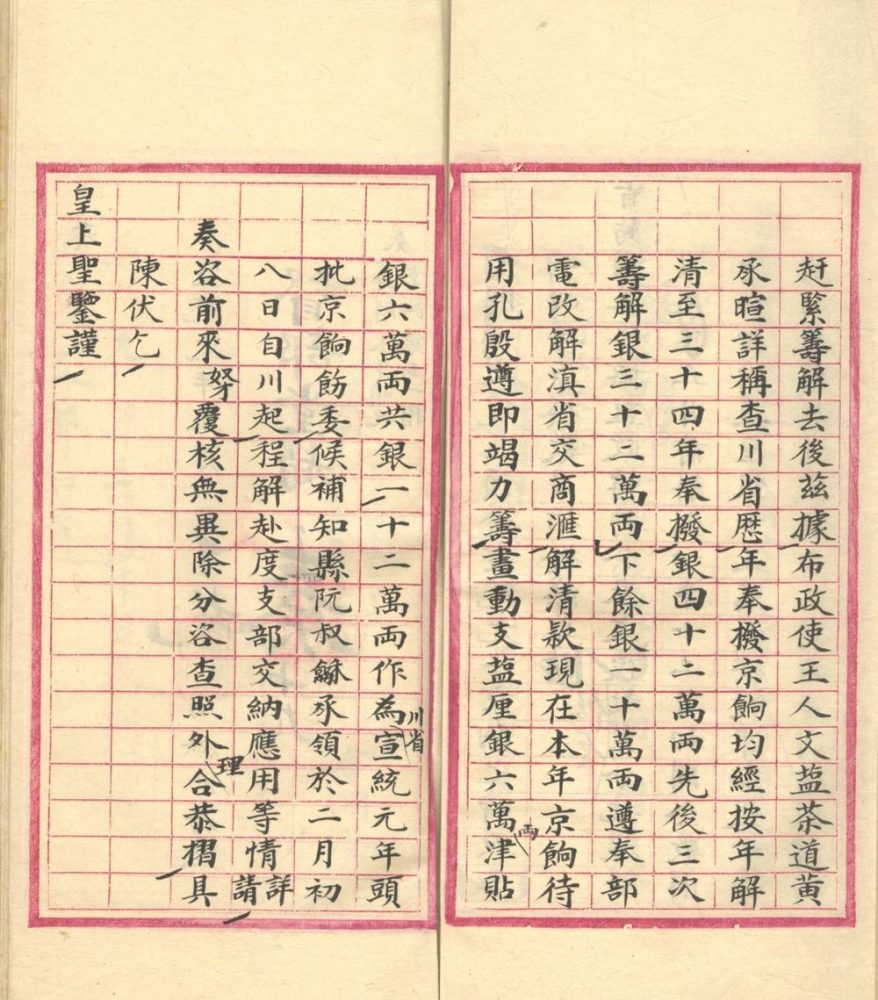 赶緊籌解去後茲據布政使王人文塩茶道黄
承暄詳稱查川省歷年奉撥京餉均經按年解
清至三十四年奉撥銀四十二萬両先後三次
籌解銀三十二萬両下餘銀一十萬両遵奉部
電改解滇省交商滙解清款現在本年京餉待
用孔殷遵即竭力籌畫動支塩厘銀六萬両津貼
銀六萬両共銀一十二萬両作為川省宣統元年頭
批京餉飭委候補知縣阮叔龢承領於二月初
八日自川起程解赴度支部交納應用等情詳請
奏咨前來奴才覆核無異除分咨查照外理合恭摺具
陳伏乞
皇上聖鑒謹